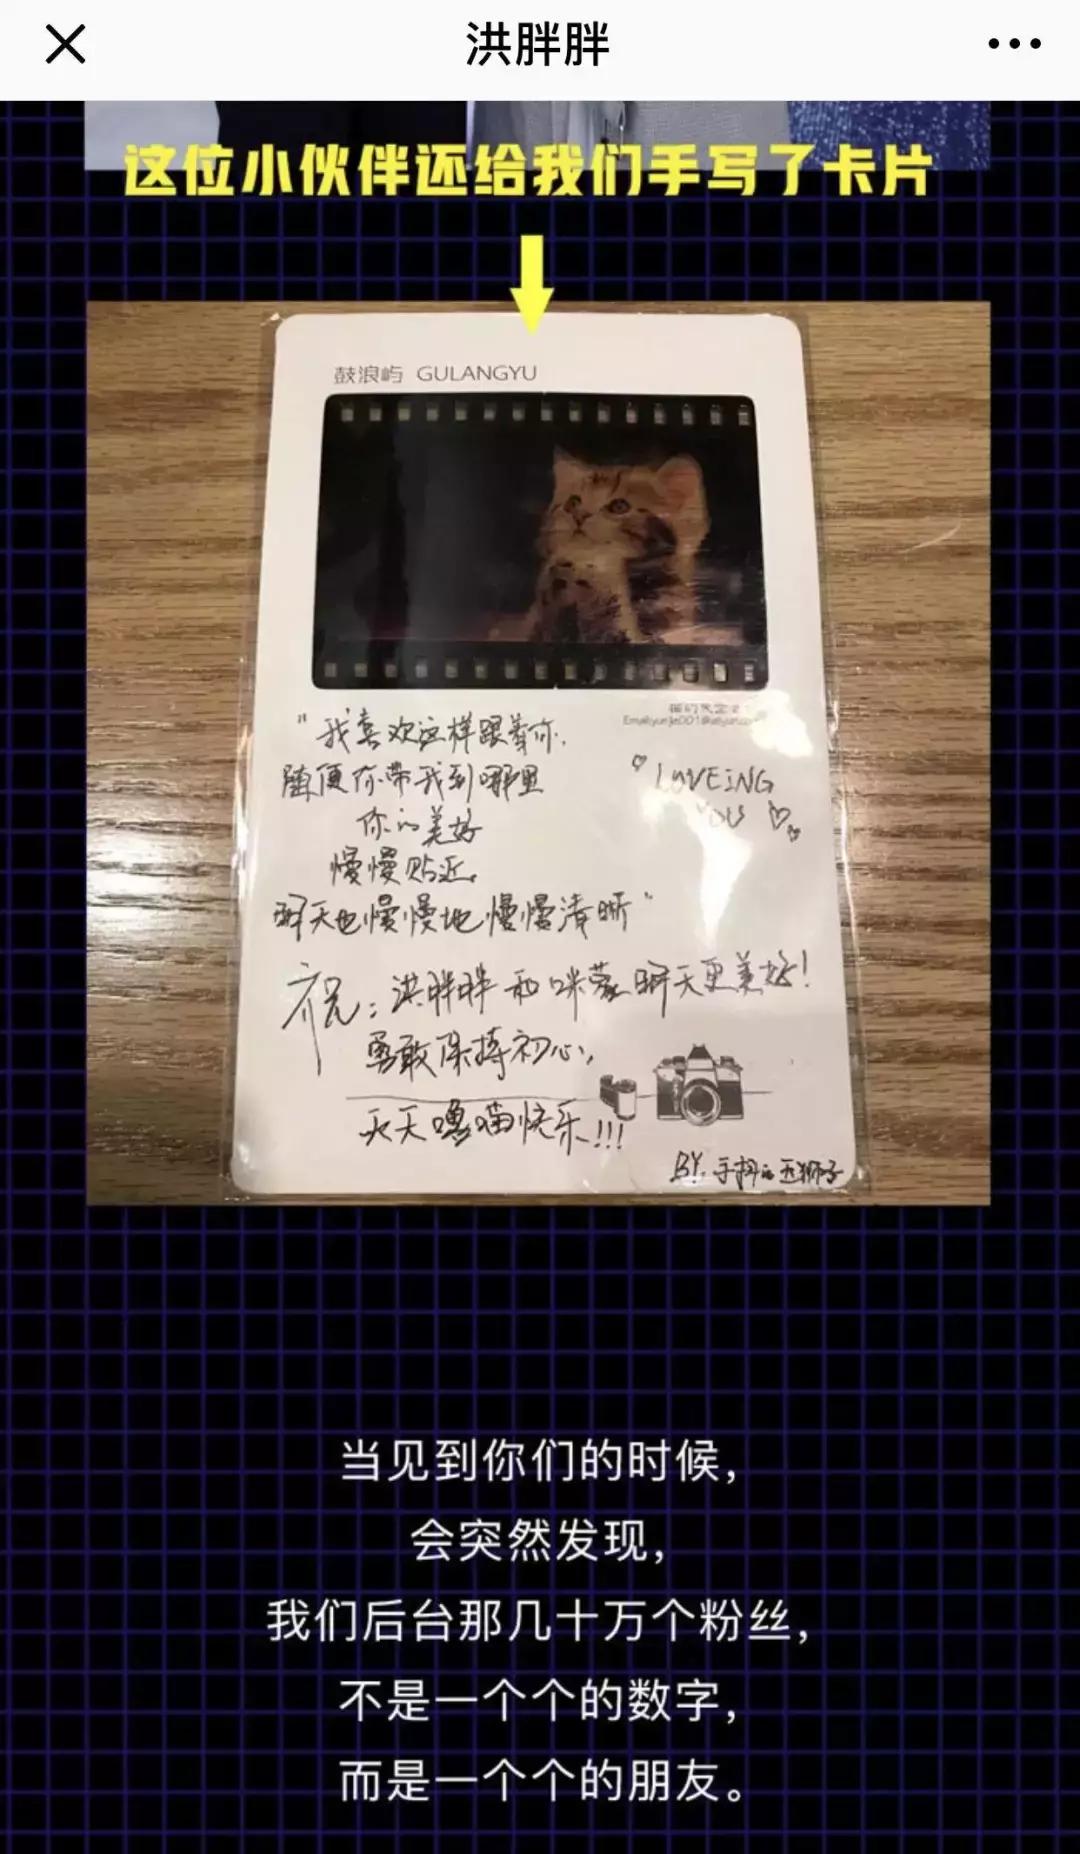 洪胖胖
这位小伙伴还给我们手写了卡片
鼓浪屿 GULANGYU
"我喜欢这样跟着你,
随便你带我到哪里
你的美好
慢慢贴近,
聊天也慢慢地慢慢清晰"
LOVEiNG
YOU
祝:洪胖胖和咪蒙聊天更美好!
勇敢保持初心,
天天噜喵快乐!!!
BY.手抖的 狮子
当见到你们的时候,
会突然发现,
我们后台那几十万个粉丝,
不是一个个的数字,
而是一个个的朋友。